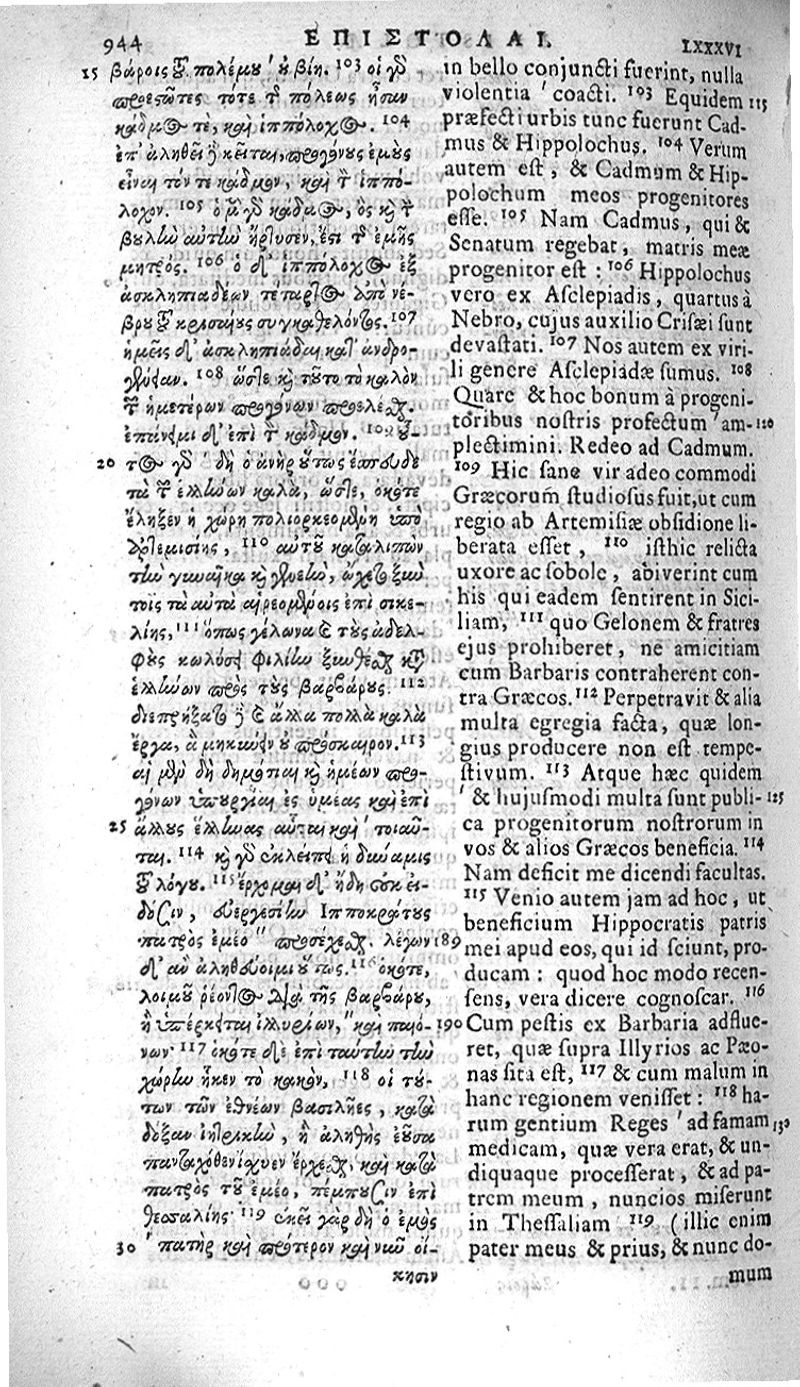 944
ΕΠΙΣΤΟΛΑΙ.
LXXXVI
15 βάροις τοῦ πολέμου ʹ οὐ βίῃ. 103 οἱ γὸ
προεστῶτες τότε τῆς πόλεως ἦσαν
κάδμος τὲ, καὶ ἱππόλοχος. 104
ἐπ' ἀληθεῖ δὲ κεῖται, προγόνους ἐμοὺς
εἶναι τόν τε κάδμον, καὶ τὸν ἱππό-
λοχον. 105 ὁ μὲν γὸ κάδμος, ὃς καὶ τὴν
βουλὴν αὐτὴν ἤρτυσεν, ἔστι τῆς ἐμῆς
μητρός. 106 ὁ δ' ἱππόλοχος ἐξ
ἀσκληπιαδέων τέταρτος ἀπὸ νέ-
βρου τοῦ κρισαίους συγκαθελόντος. 107
ἡμεῖς δ' ἀσκληπιάδαι κατ' ἀνδρο-
γένειαν. 108 ὥστε καὶ τοῦτο τὸ καλὸν
τῶν ἡμετέρων προγόνων προελέσθαι.
ἐπάνειμι δ' ἐπὶ τὸν κάδμον. 109 οὗ-
20 τος γὸ ʹ δὴ ὁ ἀνὴρ οὕτως ἐσπούδε
τὰ τῶν ἑλλήνων καλὰ, ὥστε, ὁκότε
ἔληξεν ἡ χώρη πολιορκεομένη ὑπὸ
ἀρτεμισίης, 110 αὐτοῦ καταλιπὼν
τὴν γυναῖκα καὶ γενεὴν, ᾤχετο ξὺν
τοῖς τὰ αὐτὰ αἱρεομένοις ἐπὶ σικε-
λίης, 111 ὅπως γέλωνα καὶ τοὺς ἀδελ-
φοὺς κωλύσῃ φιλίην ξυνθέσθαι κατὰ τῶν
ἑλλήνων πρὸς τοὺς βαρβάρους. 112
διεπρήξατο δὲ καὶ ἄλλα πολλὰ καλὰ
ἔργα, ἃ μηκύνειν οὐ πρόσκαιρον. 113
αἱ μὲν δὴ δημόται καὶ ἡμέων προ-
γόνων ὑπουργίαι ἐς ὑμέας καὶ ἐπὶ
25 ἄλλους ἕλληνας αὗται καὶ ʹ τοιαῦ-
ται. 114 καὶ γὸ ἐκλείπει ἡ δύναμις
τοῦ λόγου. 115 ἔρχομαι δ' ἤδη οὐκ εἰ-
δόσιν, εὐεργεσίην Ἱπποκράτους
πατρὸς ἐμέο ʺ προσέχεσθαι. λέγων 189
δ' ἂν ἀληθεύοιμι οὕτως. 116 ὁκότε,
λοιμοῦ ῥέοντος διὰ τῆς βαρβάρου,
ἣ ὑπέρκειται ἰλλυριῶν, ʺ καὶ παιό- 190
νων· 117 ὁκότε δὲ ἐπὶ ταύτην τὴν
χώρην ἧκεν τὸ κακὸν, 118 οἱ τού-
των τῶν ἐθνέων βασιλῆες, κατὰ
δόξαν ἰητρικὴν, ἣ ἀληθὴς ἐοῦσα
πανταχόθεν ἴσχυεν ἔρχεσθαι, καὶ κατὰ
πατρὸς τοῦ ἐμέο, πέμπουσιν ἐπὶ
θεσσαλίης· 119 ἐκεῖ γὰρ δὴ ὁ ἐμὸς
30 ʹ πατὴρ καὶ πρότερον καὶ νῦν οἴ-
κησιν
in bello conjuncti fuerint, nulla
violentia ʹ coacti. 103 Equidem 115
præfecti urbis tunc fuerunt Cad-
mus & Hippolochus. 104 Verum
autem est, & Cadmum & Hip-
polochum meos progenitores
esse. 105 Nam Cadmus, qui &
Senatum regebat, matris meæ
progenitor est : 106 Hippolochus
vero ex Asclepiadis, quartus à
Nebro, cujus auxilio Crisæi sunt
devastati. 107 Nos autem ex viri-
li genere Asclepiadæ sumus. 108
Quare & hoc bonum à progeni-
toribus nostris profectum ʹ am- 120
plectimini. Redeo ad Cadmum.
109 Hic sane vir adeo commodi
Græcorum studiosus fuit, ut cum
regio ab Artemisiæ obsidione li-
berata esset, 110 isthic relicta
uxore ac sobole, abiverint cum
his qui eadem sentirent in Sici-
liam, 111 quo Gelonem & fratres
ejus prohiberet, ne amicitiam
cum Barbaris contraherent con-
tra Græcos. 112 Perpetravit & alia
multa egregia facta, quæ lon-
gius producere non est tempe-
stivum. 113 Atque hæc quidem
ʹ & hujusmodi multa sunt publi- 125
ca progenitorum nostrorum in
vos & alios Græcos beneficia. 114
Nam deficit me dicendi facultas.
115 Venio autem jam ad hoc, ut
beneficium Hippocratis patris
mei apud eos, qui id sciunt, pro-
ducam : quod hoc modo recen-
sens, vera dicere cognoscar. 116
Cum pestis ex Barbaria adflue-
ret, quæ supra Illyrios ac Pæo-
nas sita est, 117 & cum malum in
hanc regionem venisset : 118 ha-
rum gentium Reges ʹ ad famam 130
medicam, quæ vera erat, & un-
diquaque processerat, & ad pa-
trem meum, nuncios miserunt
in Thessaliam 119 (illic enim
pater meus & prius, & nunc do-
mum